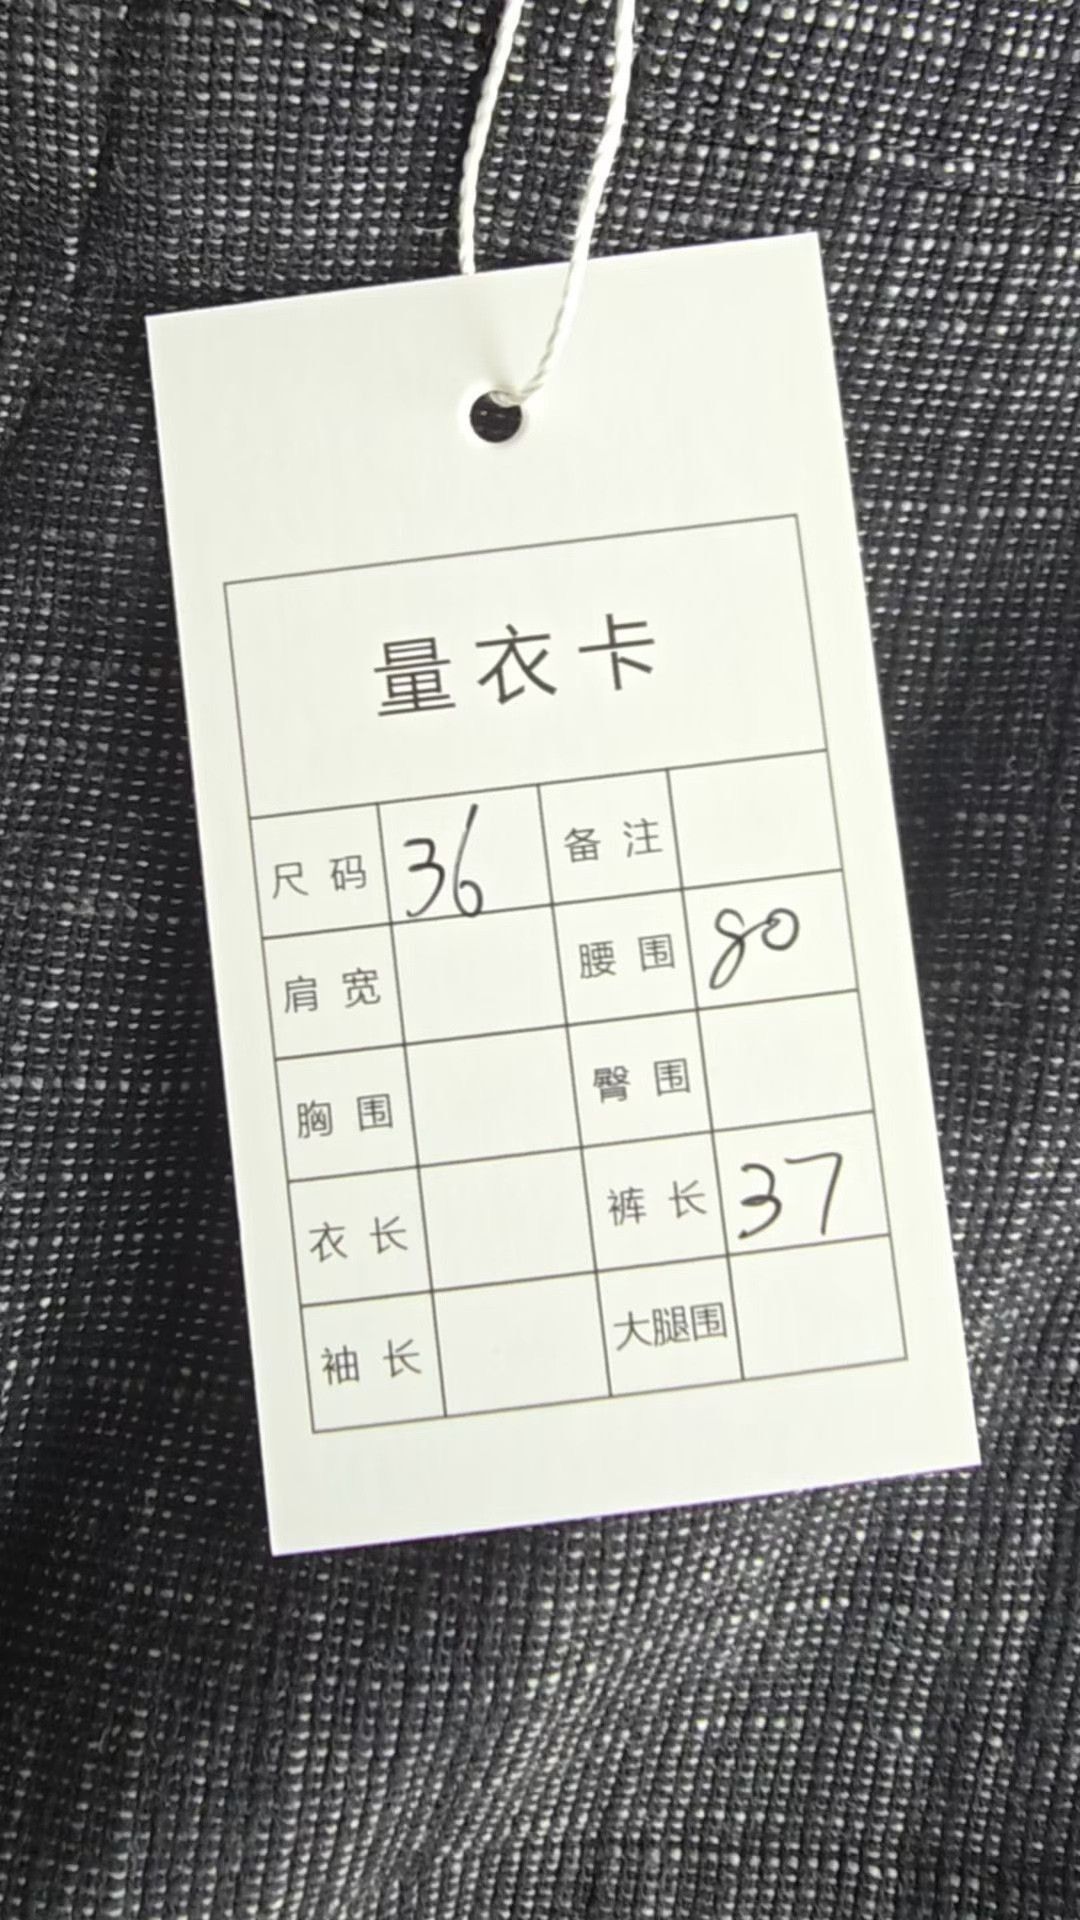 量衣卡
尺码 36 备注
肩宽 腰围 80
胸围 臀围
衣长 裤长 37
袖长 大腿围